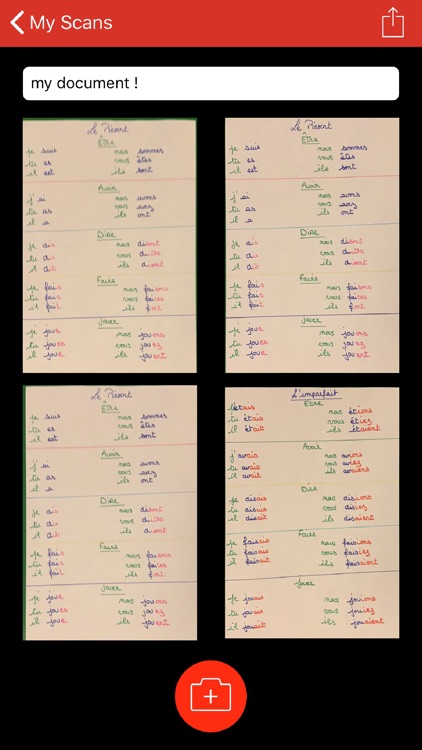 My Scans
my document !
Le Présent
Être
je suis nous sommes
tu es vous êtes
il est ils sont
Avoir
j'ai nous avons
tu as vous avez
il a ils ont
Dire
je dis nous
tu dis vous dites
il dit ils disent
Faire
je fais nous faisons
tu fais vous faites
il fait ils font
Jouer
je joue nous jouons
tu joues vous jouez
il joue ils jouent
Le Présent
Être
je suis nous sommes
tu es vous êtes
il est ils sont
Avoir
j'ai nous avons
tu as vous avez
il a ils ont
Dire
je dis nous
tu dis vous dites
il dit ils disent
Faire
je fais nous faisons
tu fais vous faites
il fait ils font
Jouer
je joue nous jouons
tu joues vous jouez
il joue ils jouent
Le Présent
Être
je suis nous sommes
tu es vous êtes
il est ils sont
Avoir
j'ai nous avons
tu as vous avez
il a ils ont
Dire
je dis nous
tu dis vous dites
il dit ils disent
Faire
je fais nous faisons
tu fais vous faites
il fait ils font
Jouer
je joue nous jouons
tu joues vous jouez
il joue ils jouent
L'imparfait
Etre
j'étais nous étions
tu étais vous étiez
il était ils étaient
Avoir
j'avais nous avions
tu avais vous aviez
il avait ils avaient
Dire
je disais nous disions
tu disais vous disiez
il disait ils disaient
Faire
je faisais nous faisions
tu faisais vous faisiez
il faisait ils faisaient
Jouer
je jouais nous jouions
tu jouais vous jouiez
il jouait ils jouaient